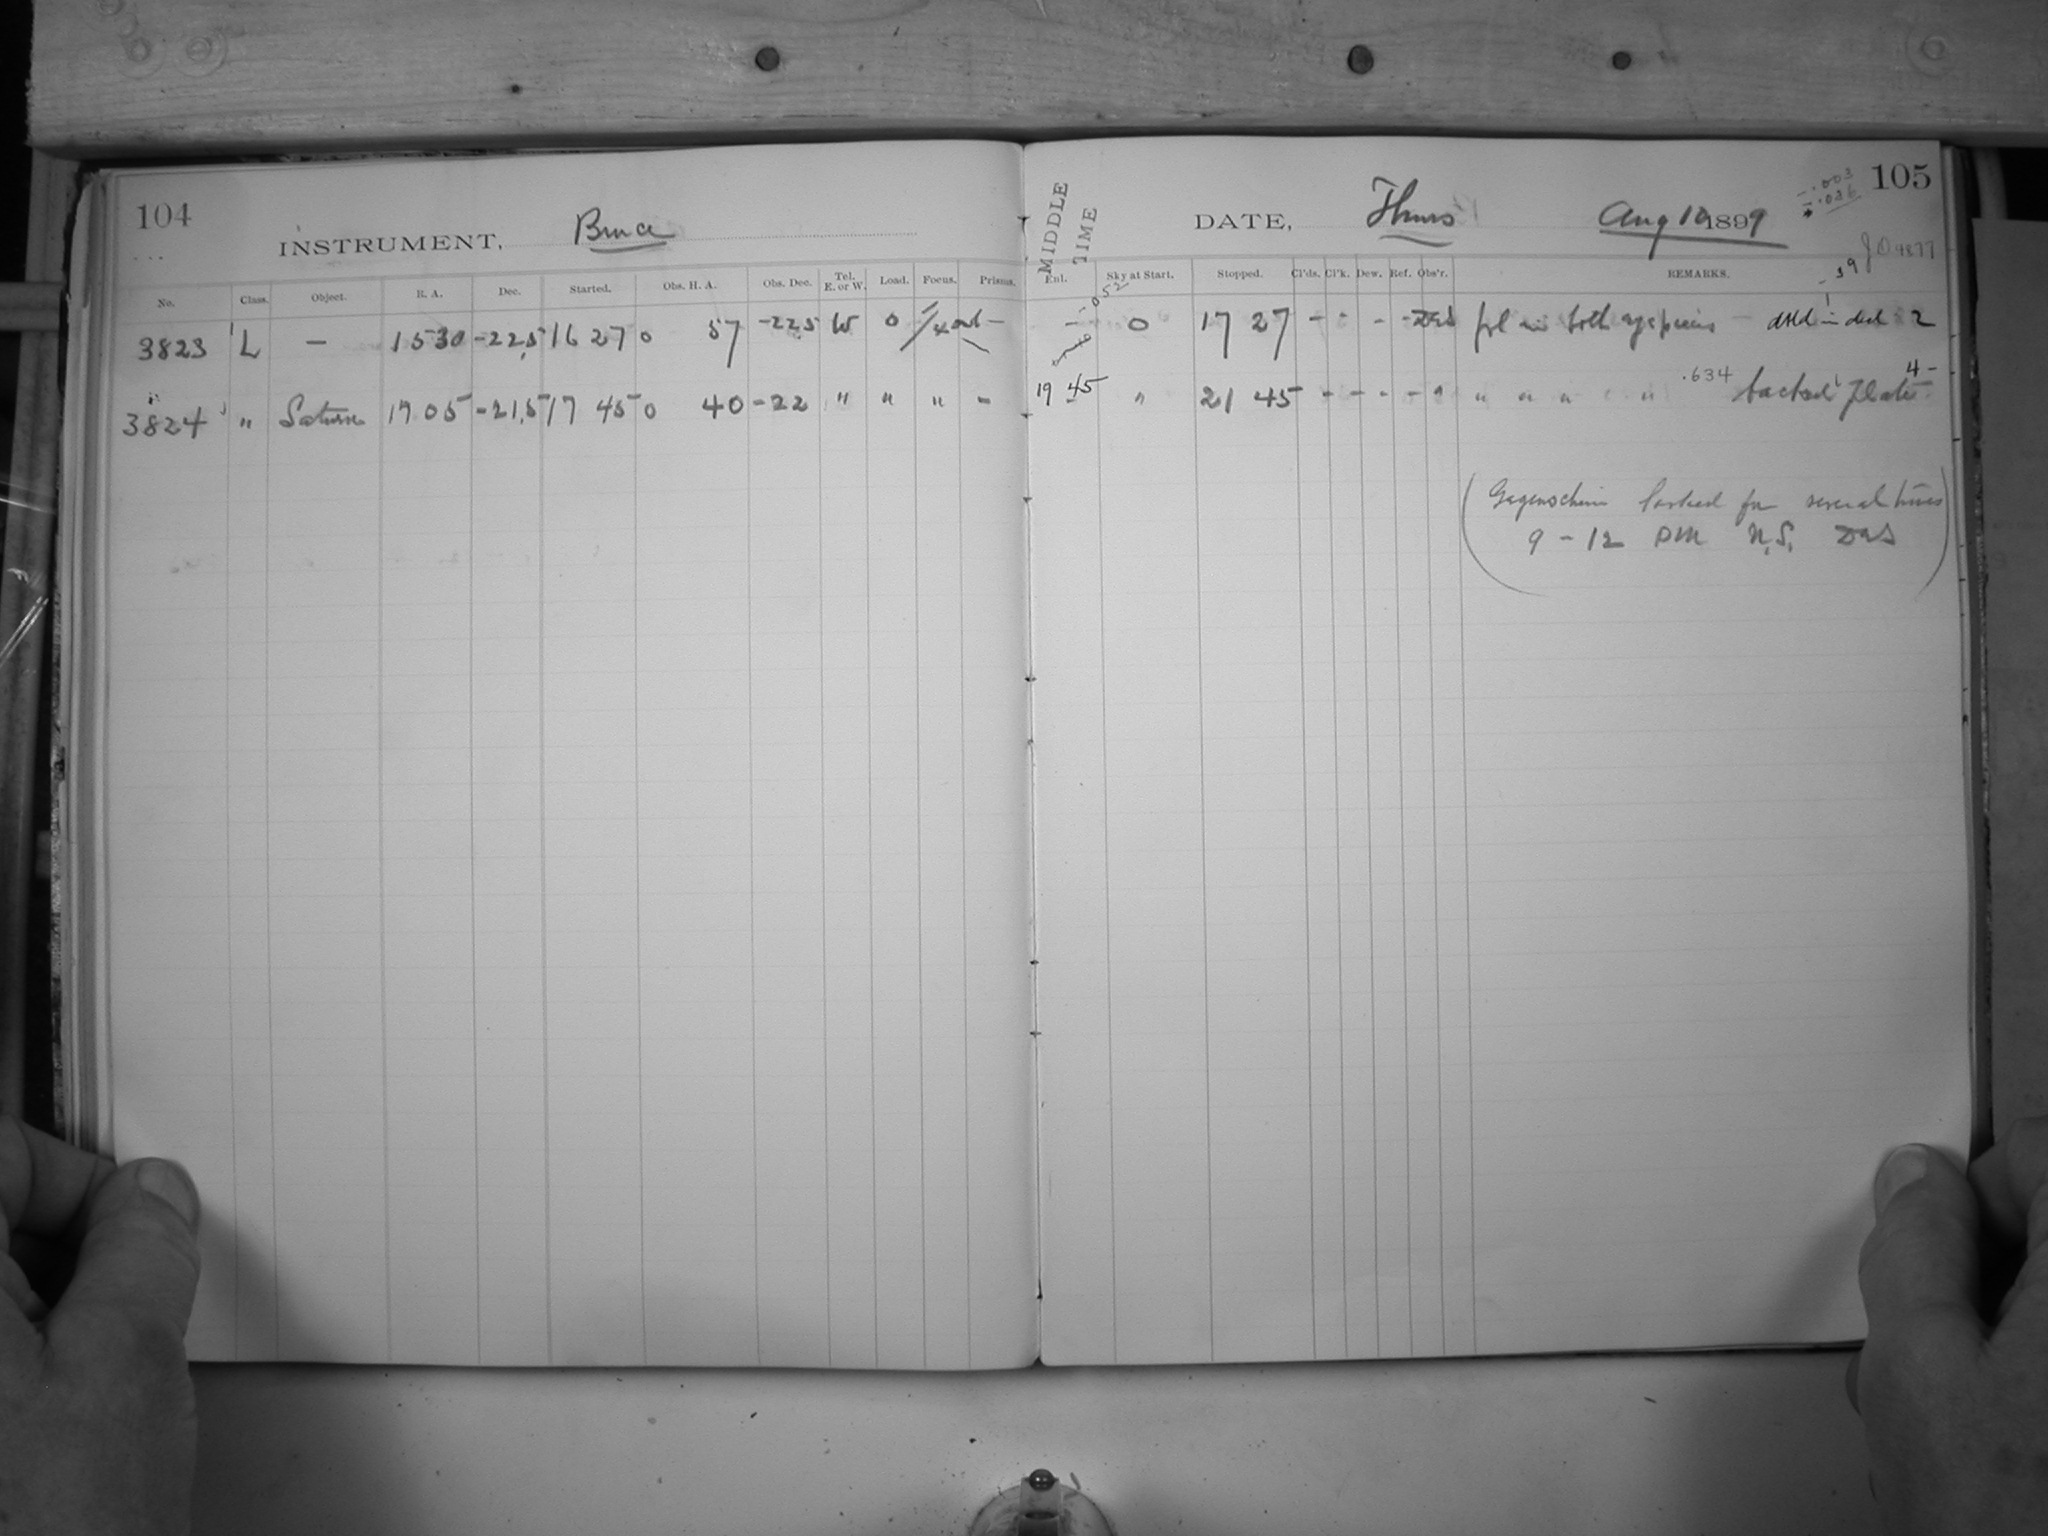 104
INSTRUMENT, Bruce
MIDDLE TIME
DATE, Thurs Aug 10 1899
105
-.003
-.036
JD 4877
No. Class. Object. R. A. Dec. Started. Obs. H. A. Obs. Dec. Tel. E. or W. Load. Focus. Prisms. Enl. Sky at Start. Stopped. Cl'ds. Cl'k. Dew. Ref. Obs'r. REMARKS.
3823 L — 15 30 -22.5 16 27 0 57 -22.5 W 0 out — 0 17 27 - - - - fol in both eyepieces dkld in decl 2
3824 " Saturn 17 05 -21.5 17 45 0 40 -22 " " " - 19 45 " 21 45 - - - - " " " " " " .634 backed Plate 4-
(Gegenschein looked for several times
9 - 12 PM N.S.